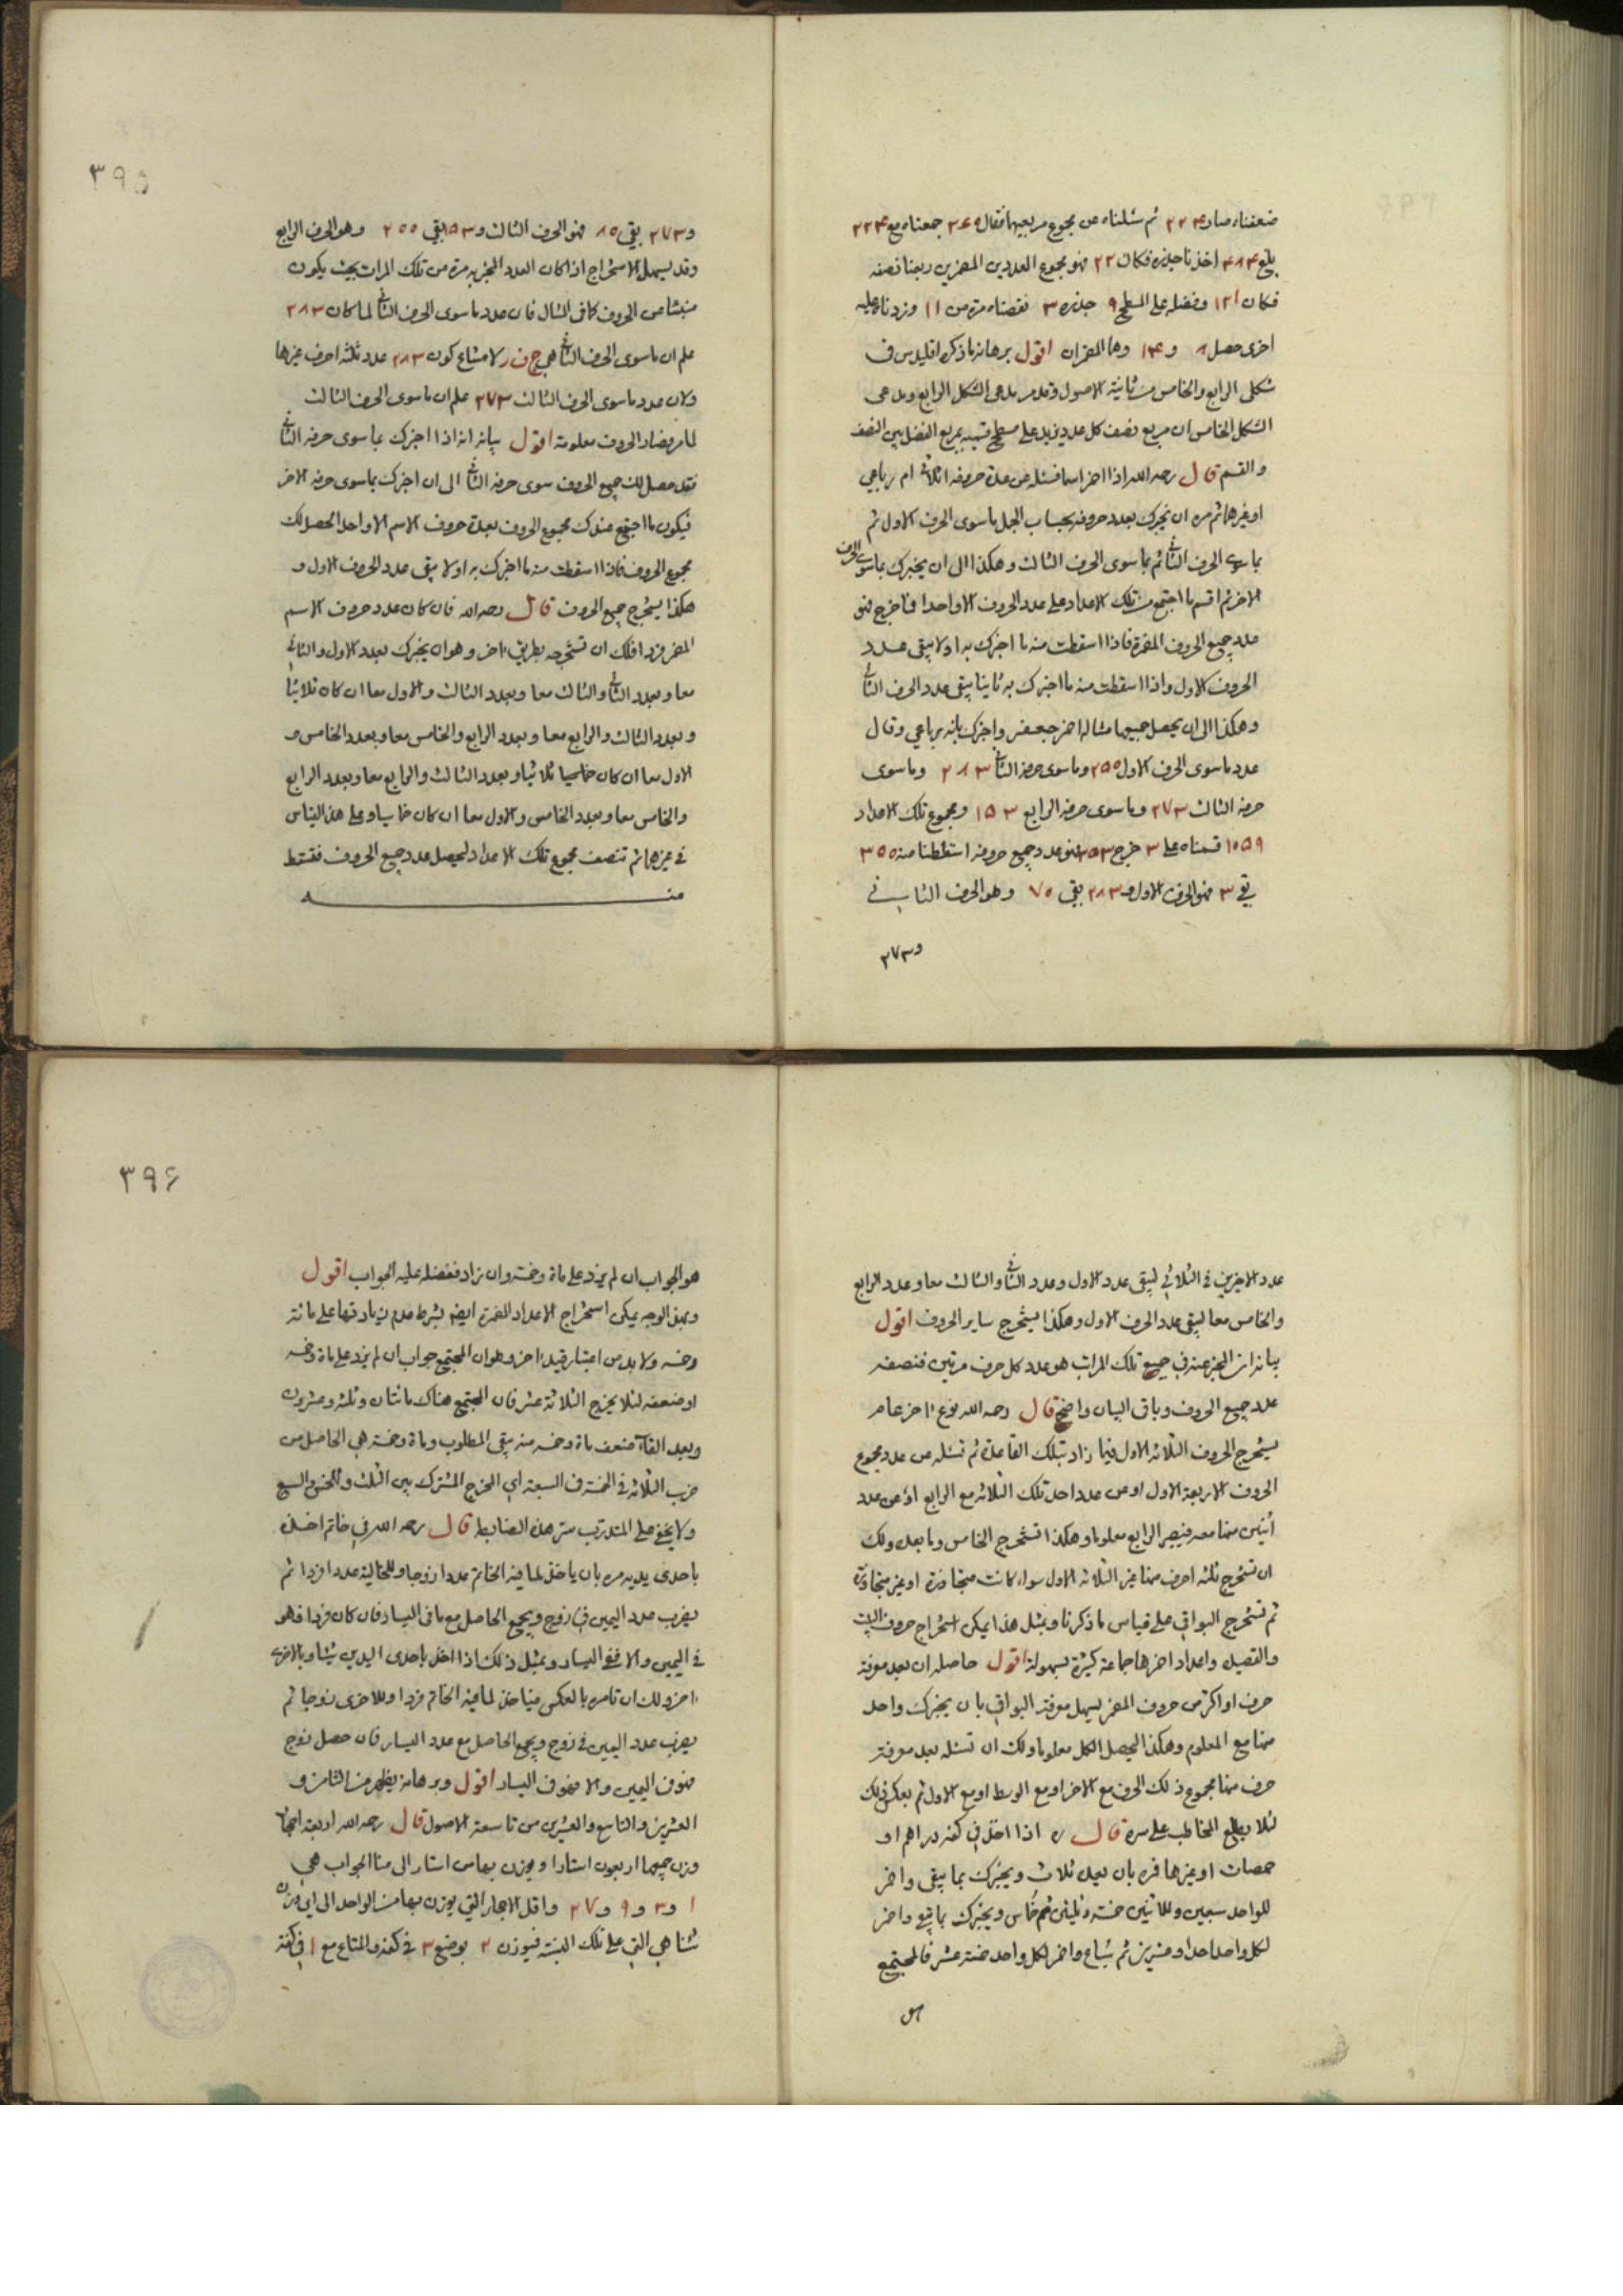 ضعفناه صار ٢٢٤ ثم سئلناه عن مجموع مربعيهما فقال ٢٦٠ جمعناه مع ٢٢٤
بلغ ٤٨٤ اخذنا جذره فكان ٢٢ فهو مجموع العددين المضمرين ربعنا نصفه
فكان ١٢١ وفضله على المسطح ٩ جذره ٣ نقصناه مرة من ١١ وزدناه عليه
اخرى حصل ٨ و ١٤ وهما المضمران اقول برهانه ما ذكره اقليدس في
شكلى الرابع والخامس من ثانية الاصول وقد مر مدعى الشكل الرابع ومدعى
الشكل الخامس ان مربع نصف كل عدد يزيد على مسطح قسميه بمربع الفضل بين النصف
والقسم قال رحمه الله اذا اضمر اسما فسئله عن عدة حروفه اثلاثى ام رباعي
او غيرهما ثم مره ان يخبرك بعدد حروفه بحساب الجمل ما سوى الحرف الاول ثم
بما سوى الحرف الثانى ثم بما سوى الحرف الثالث وهكذا الى ان يخبرك بما سوى الحرف
الاخر ثم اقسم ما اجتمع من تلك الاعداد على عدد الحروف الا واحدا فما خرج فهو
عدد جميع الحروف المضمرة فاذا اسقطت منه ما اخبرك به اولا يبقى عدد
الحروف الاول واذا اسقطت منه ما اخبرك به ثانيا يبقى عدد الحرف الثانى
وهكذا الى ان يحصل جميعها مثاله اضمر جعفر واخبرك بانه رباعي وقال
عدد ما سوى الحرف الاول ٣٥٠ وما سوى حرفه الثانى ٢٨٣ وما سوى
حرفه الثالث ٢٧٣ وما سوى حرفه الرابع ١٥٣ ومجموع تلك الاعداد
١٠٥٩ قسمناه على ٣ خرج ٣٥٣ فهو عدد جميع حروفه اسقطنا منه ٣٥٠
بقي ٣ فهو الحرف الاول و ٢٨٣ بقي ٧٠ وهو الحرف الثاني
و ٢٧٣
٣٩٥
و ٢٧٣ بقي ٨٠ فهو الحرف الثالث و ١٥٣ بقي ٢٠٠ وهو الحرف الرابع
وقد يسهل الاستخراج اذا كان العدد المخبر به مرة من تلك المرات بحيث يكون
من الحروف كما فى المثال فان عدد ما سوى الحرف الثانى لما كان ٢٨٣
علم ان ما سوى الحرف الثانى هي ج ف ر لامتناع كون ٢٨٣ عدد ثلثة احرف غيرها
ولان عدد ما سوى الحرف الثالث ٢٧٣ علم ان ما سوى الحرف الثالث
لما مر فصار الحروف معلومة اقول بيانه انه اذا اخبرك بما سوى حرفه الثانى
فقد حصل لك جميع الحروف سوى حرفه الثانى الى ان اخبرك بما سوى حرفه الاخر
فيكون ما اجتمع عندك مجموع الحروف بعدة حروف الاسم الا واحدا الحصل لك
مجموع الحروف فاذا اسقطت منه ما اخبرك به اولا يبقى عدد الحروف الاول و
هكذا يستخرج جميع الحروف قال رحمه الله فان كان عدد حروف الاسم
المضمر فردا فلك ان تستخرجه بطريق اخر وهو ان يخبرك بعدد الاول والثانى
معا وبعدد الثانى والثالث معا وبعدد الثالث والاول معا ان كان ثلاثيا
وبعدد الثالث والرابع معا وبعدد الرابع والخامس معا وبعدد الخامس و
الاول معا ان كان خماسيا ثلاثيا وبعدد الثالث والرابع معا وبعدد الرابع
والخامس معا وبعدد الخامس والاول معا ان كان خماسيا وعلى هذا القياس
في غيرها ثم تنصف مجموع تلك الاعداد ليحصل عدد جميع الحروف فتسقط
منه
عدد الاخرين في الثلاثي ليبقى عدد الاول وعدد الثانى والثالث معا وعدد الرابع
والخامس معا ليبقى عدد الحرف الاول وهكذا يستخرج ساير الحروف اقول
بيانه ان المخبر عنه في جميع تلك المراتب هو عدد كل حرف مرتين فنصفه
عدد جميع الحروف وباقى البيان واضح قال رحمه الله نوع اخر عام
يستخرج الحروف الثلاثه الاول فيما زاد بتلك القاعدة ثم تسئله عن عدد مجموع
الحروف الاربعة الاول او عن عدد احد تلك الثلاثه مع الرابع او عن عدد
اثنين منها معه فيصير الرابع معلوما وهكذا تستخرج الخامس وما بعده ولك
ان تستخرج ثلثه احرف منها غير الثلاثه الاول سواء كانت متجاورة او غير متجاورة
ثم تستخرج البواقي على قياس ما ذكرنا وبمثل هذا يمكن استخراج حروف البيت
والقصيل واعداد اضمرها جماعة كثيرة بسهولة اقول حاصله ان بعد معرفة
حرف او اكثر من حروف المضمر يسهل معرفة البواقي بان يخبرك واحد
منها مع المعلوم وهكذا ليحصل الكل معلوما ولك ان تسئله بعد معرفة
حرف منها مجموع ذلك الحرف مع الاخر او مع الوسط او مع الاول ثم بعكس ذلك
لئلا يطلع المخاطب على سره قال ره اذا اخذ في كفه دراهم او
حمصات او غيرها فمره بان يعد ثلاث ويخبرك بما يبقى واضمر
للواحد سبعين وللاثنين خمسه وثلثين ثم خماس ويخبرك بما يبقى واضمر
لكل واحد احدا وعشرين ثم سباع واضمر لكل واحد خمسة عشر فالمجتمع
هو
٣٩٦
هو الجواب ان لم يزد على ماة وخمسة وان زاد ففضله عليه الجواب اقول
وبهذا الوجه يمكن استخراج الاعداد المضمرة ايضا بشرط عدم زيادتها على مائة
وخمسه ولا بد من اعتبار قيد اخر وهو ان المجتمع جواب ان لم يزد على ماة وخمسه
او ضعفه لئلا يخرج الثلاثة عشر فان المجتمع هناك مائتان وثلثه وعشرون
وبعد القاء ضعف ماة وخمسه منه يبقى المطلوب وماة وخمسة هي الحاصل من
ضرب الثلاثه في الخمسة في السبعة اي المخرج المشترك بين الثلث والخمس والسبع
ولا يخفى على المتدرب سر هذه الضابطة قال رحمه الله في خاتم اخذه
باحدى يديه مره بان ياخذ لما فيه الخاتم عددا زوجا وللخالية عددا فردا ثم
يضرب عدد اليمين في زوج ويجمع الحاصل مع ما فى اليسار فان كان فردا فهو
في اليمين والا ففى اليسار وبمثل ذلك اذا اخذ باحدى اليدين شيئا وبالاخرى
اخر ولك ان تامره بالعكس فياخذ لما فيه الخاتم فردا وللاخرى زوجا ثم
يضرب عدد اليمين في زوج ويجمع الحاصل مع عدد اليسار فان حصل زوج
فهو فى اليمين والا فهو فى اليسار اقول وبرهانه يظهر من الثامن و
العشرين والتاسع والعشرين من تاسعة الاصول قال رحمه الله اربعة احجار
وزن جميعها اربعون استارا ويوزن بها من استار الى منا الجواب هي
١ و ٣ و ٩ و ٢٧ واقل الاحجار التي يوزن بها من الواحد الى اي وزن
شئنا هي التي على تلك النسبة فيوزن ٢ بوضع ٣ في كفة والمتاع مع ١ في كفة